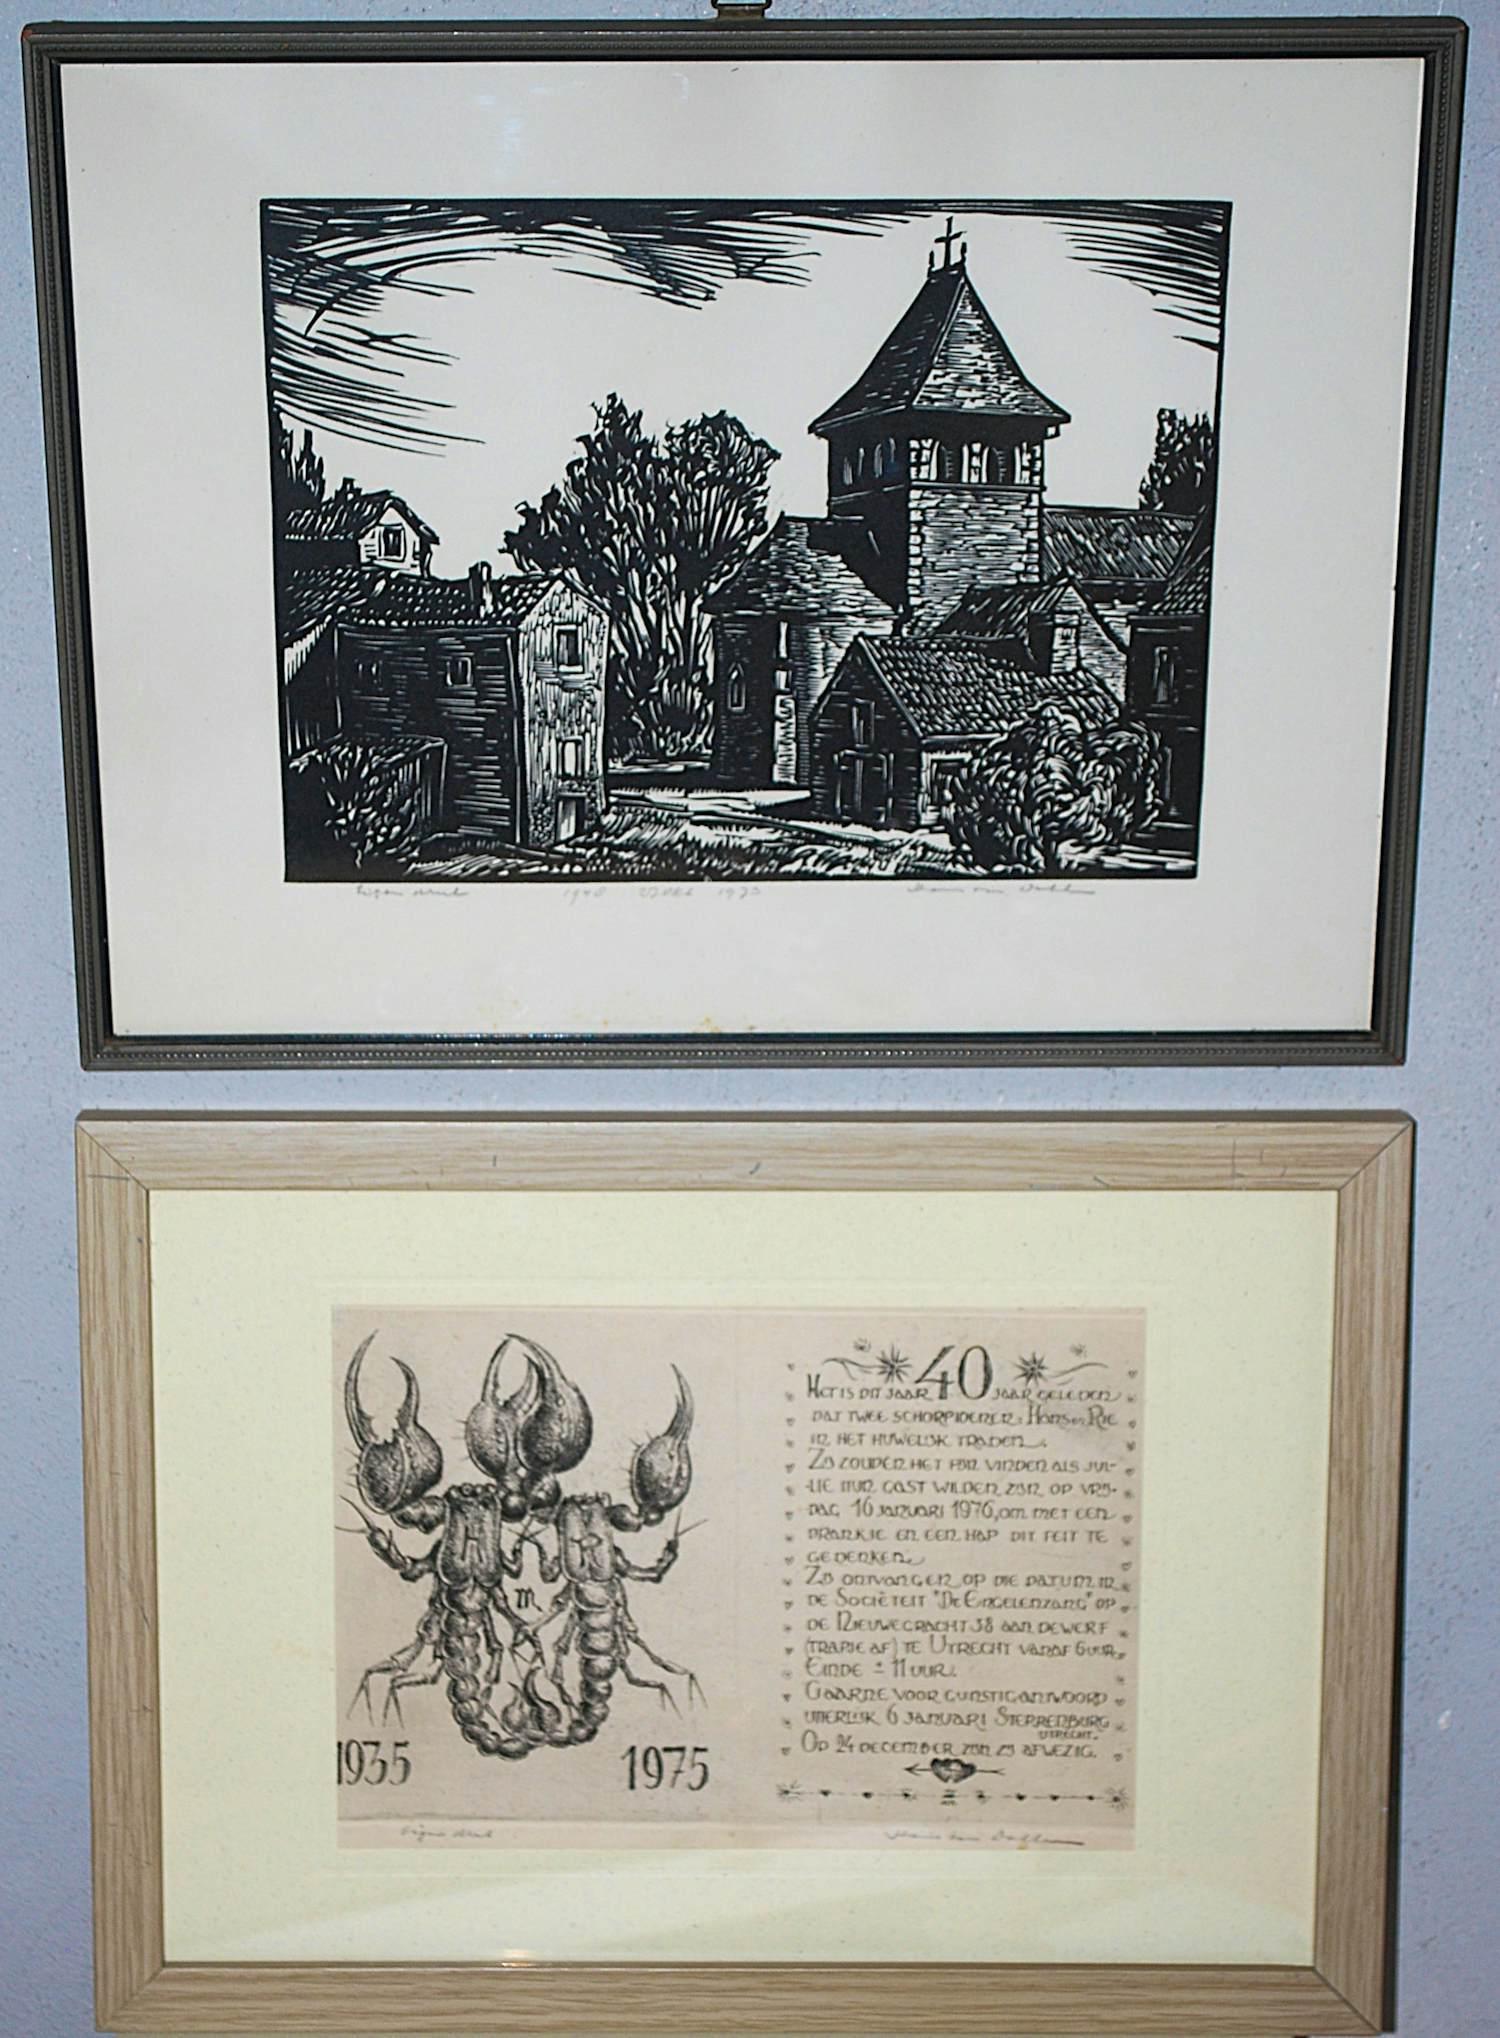 Eigen druk 1948 1973 Hans van Dokkum
40
HET IS DIT JAAR JAAR GELEDEN
DAT TWEE SCHORPIOENEN: HANS EN RIE
IN HET HUWELIJK TRADEN.
ZIJ ZOUDEN HET FIJN VINDEN ALS JUL-
LIE HUN GAST WILDEN ZIJN OP VRIJ-
DAG 16 JANUARI 1976, OM MET EEN
DRANKJE EN EEN HAP DIT FEIT TE
GEDENKEN
ZIJ ONTVANGEN OP DIE DATUM IN
DE SOCIËTEIT "DE ENGELENZANG" OP
DE NIEUWEGRACHT 38 AAN DE WERF
(TRAPJE AF) TE UTRECHT VANAF 6 UUR.
EINDE ± 11 UUR.
GAARNE VOOR GUNSTIG ANTWOORD
UITERLIJK 6 JANUARI STERRENBURG
UTRECHT.
OP 24 DECEMBER ZIJN ZIJ AFWEZIG.
H R
♏
1935 1975
Eigen druk Hans van Dokkum